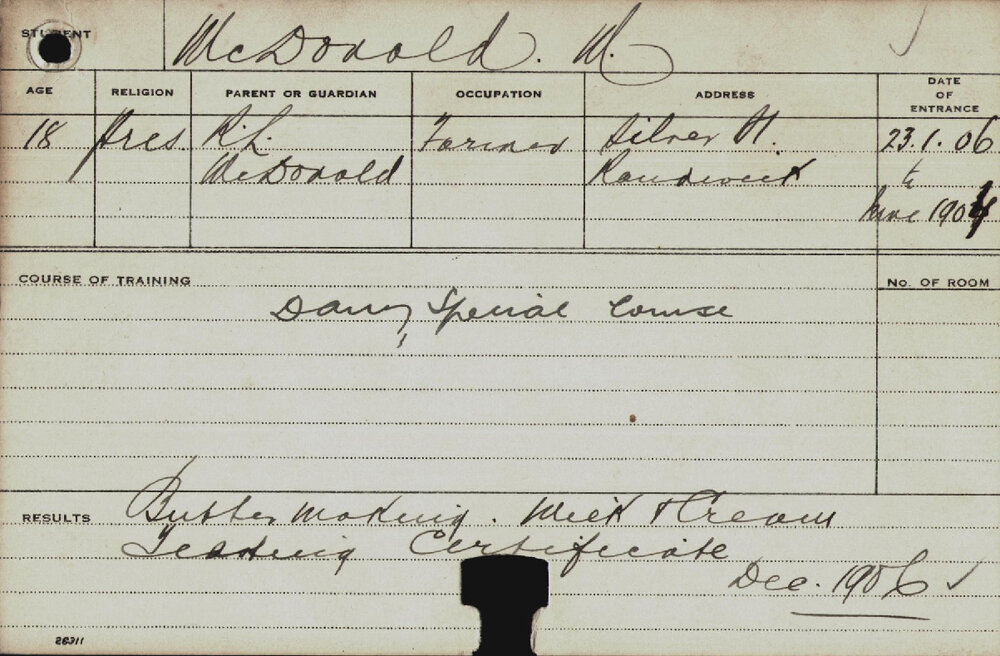 STUDENT McDonald. M.
AGE RELIGION PARENT OR GUARDIAN OCCUPATION ADDRESS DATE OF ENTRANCE
18 Pres. R. L. Farmer Silver St. 23.1.06
McDonald Randwick to
1904
COURSE OF TRAINING No. OF ROOM
Dairy Special Course
RESULTS Butter making. Milk & Cream
Testing Certificate
Dec. 1906
26311